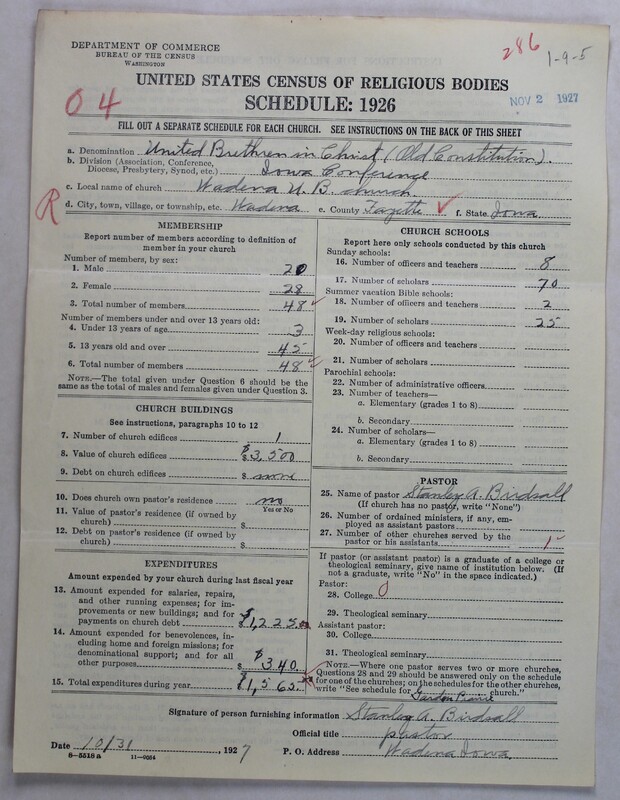 286
1-9-5
DEPARTMENT OF COMMERCE
BUREAU OF THE CENSUS
WASHINGTON
UNITED STATES CENSUS OF RELIGIOUS BODIES
SCHEDULE: 1926
04
NOV 2 1927
FILL OUT A SEPARATE SCHEDULE FOR EACH CHURCH. SEE INSTRUCTIONS ON THE BACK OF THIS SHEET
a. Denomination United Brethren in Christ (Old Constitution).
b. Division (Association, Conference, Diocese, Presbytery, Synod, etc.) Iowa Conference
c. Local name of church Wadena U. B. church.
R
d. City, town, village, or township, etc. Wadena e. County Fayette ✓ f. State Iowa
MEMBERSHIP
Report number of members according to definition of
member in your church
Number of members, by sex:
1. Male 20
2. Female 28
3. Total number of members 48 ✓
Number of members under and over 13 years old:
4. Under 13 years of age 3
5. 13 years old and over 45
6. Total number of members 48 ✓
NOTE.—The total given under Question 6 should be the
same as the total of males and females given under Question 3.
CHURCH BUILDINGS
See instructions, paragraphs 10 to 12
7. Number of church edifices 1
8. Value of church edifices $3,500
9. Debt on church edifices $ none
10. Does church own pastor's residence no
Yes or No
11. Value of pastor's residence (if owned by
church) $
12. Debt on pastor's residence (if owned by
church) $
EXPENDITURES
Amount expended by your church during last fiscal year
13. Amount expended for salaries, repairs,
and other running expenses; for im-
provements or new buildings; and for
payments on church debt $1,225.00
14. Amount expended for benevolences, in-
cluding home and foreign missions; for
denominational support; and for all
other purposes $340.
15. Total expenditures during year $1,565.
CHURCH SCHOOLS
Report here only schools conducted by this church
Sunday schools:
16. Number of officers and teachers 8
17. Number of scholars 70
Summer vacation Bible schools:
18. Number of officers and teachers 2
19. Number of scholars 25
Week-day religious schools:
20. Number of officers and teachers
21. Number of scholars
Parochial schools:
22. Number of administrative officers
23. Number of teachers—
a. Elementary (grades 1 to 8)
b. Secondary
24. Number of scholars—
a. Elementary (grades 1 to 8)
b. Secondary
PASTOR
25. Name of pastor Stanley A. Birdsall
(If church has no pastor, write "None")
26. Number of ordained ministers, if any, em-
ployed as assistant pastors
27. Number of other churches served by the
pastor or his assistants 1
If pastor (or assistant pastor) is a graduate of a college or
theological seminary, give name of institution below. (If
not a graduate, write "No" in the space indicated.)
Pastor:
28. College 0
29. Theological seminary
Assistant pastor:
30. College
31. Theological seminary
NOTE.—Where one pastor serves two or more churches,
Questions 28 and 29 should be answered only on the schedule
for one of the churches; on the schedules for the other churches,
write "See schedule for Garden Prairie church."
Signature of person furnishing information Stanley A. Birdsall
Official title pastor
Date 10/31, 1927 P. O. Address Wadena Iowa.
8-5518 a 11-9064